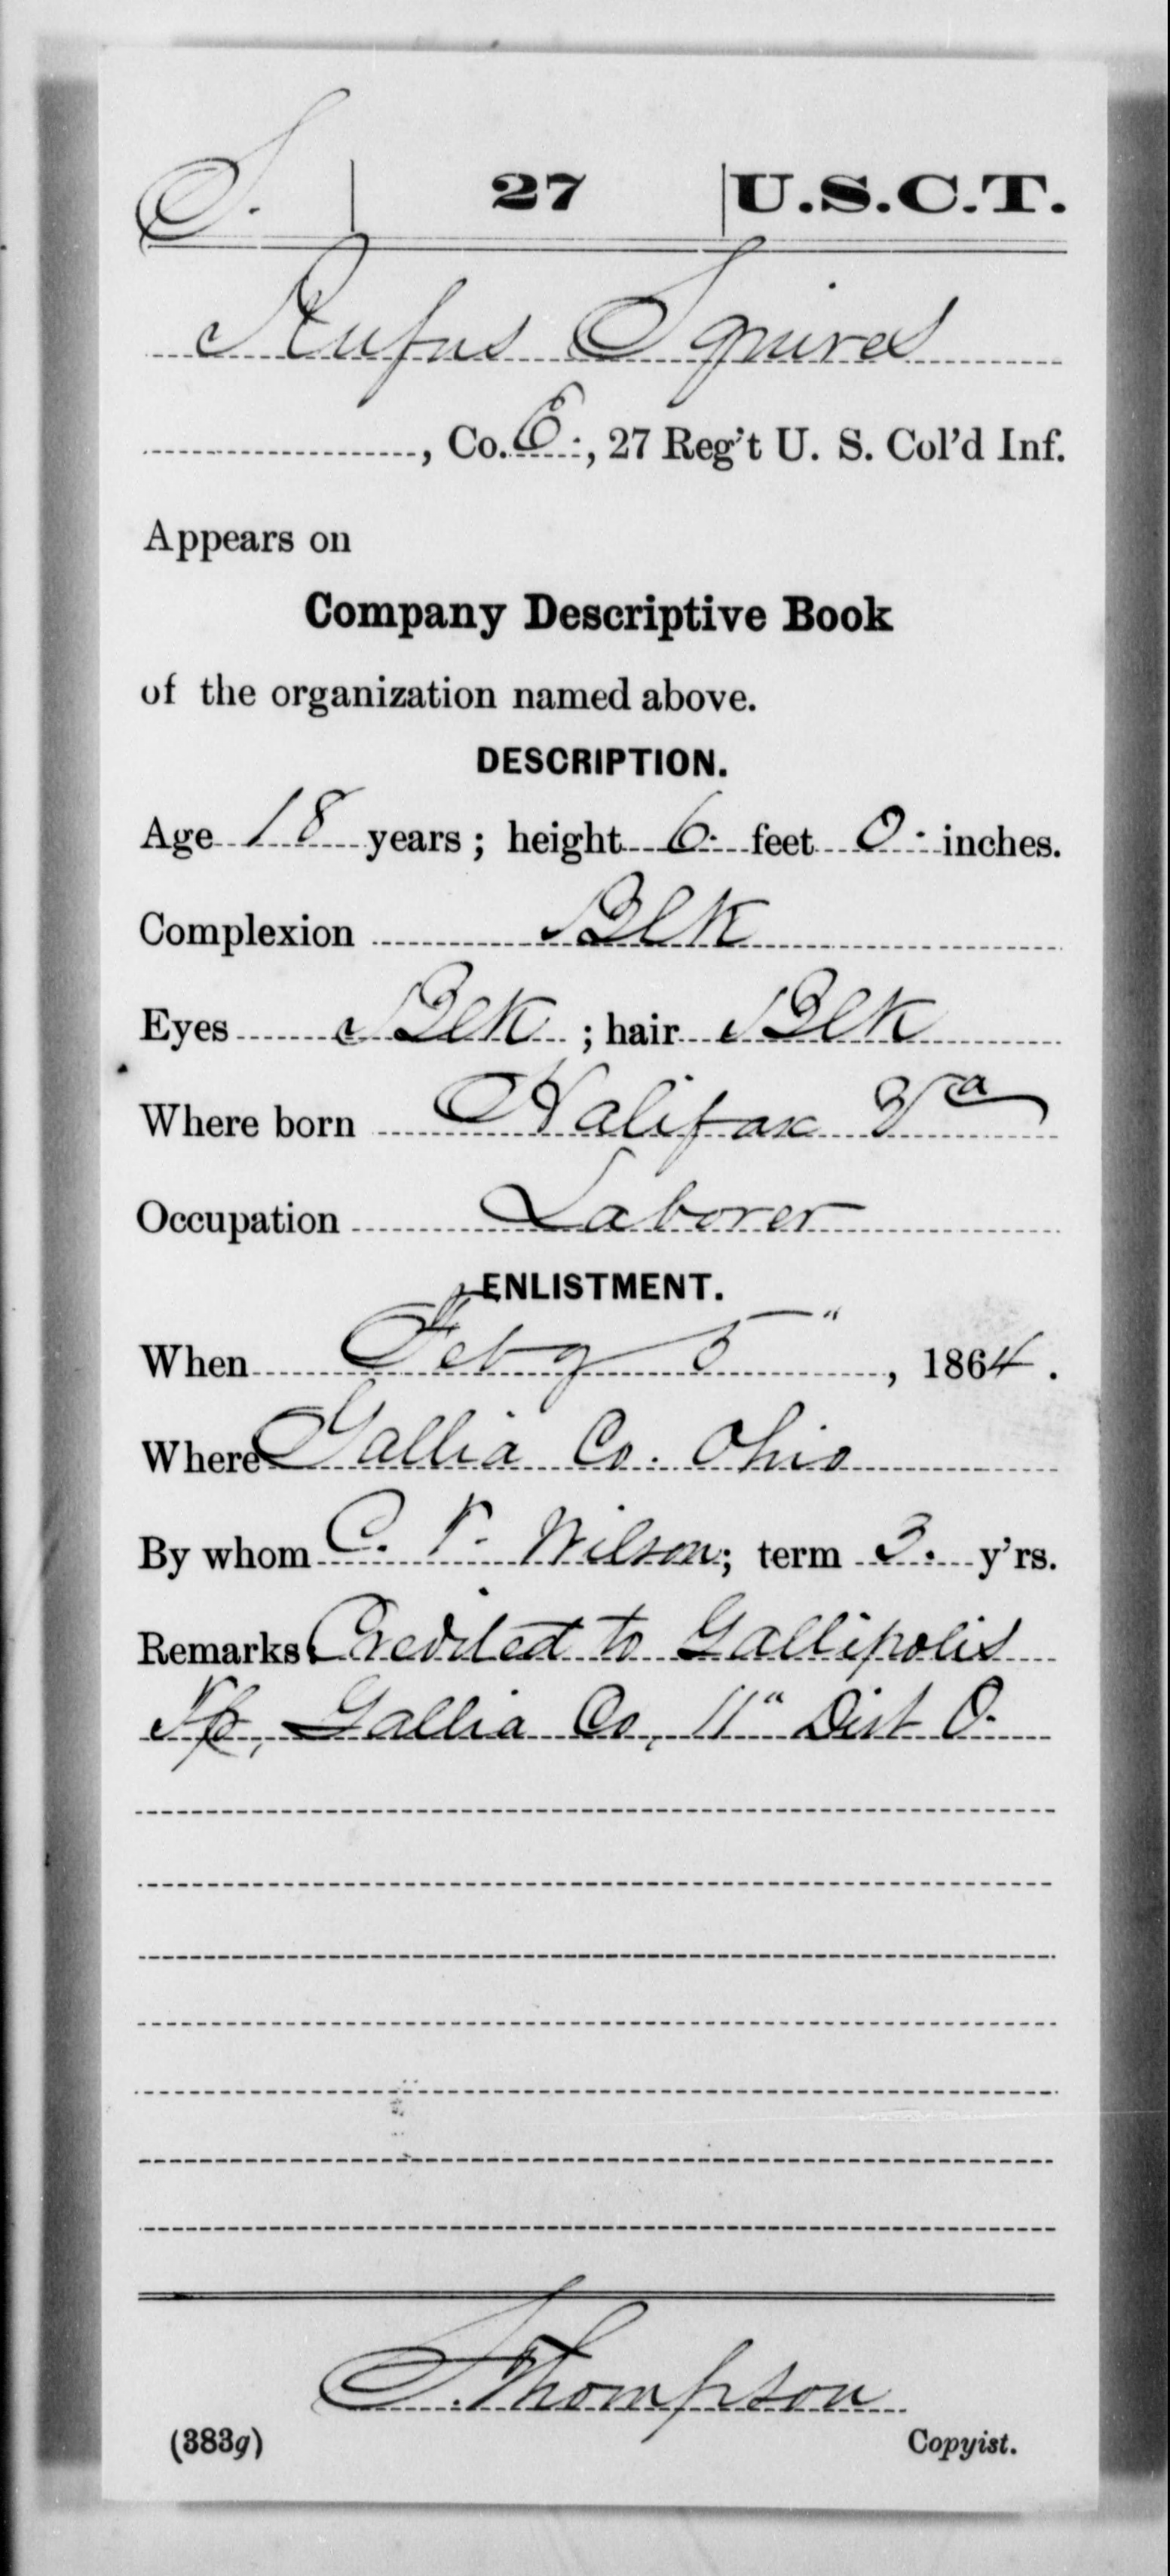 S. | 27 | U.S.C.T.
Rufus Squires
, Co. E., 27 Reg't U. S. Col'd Inf.
Appears on
Company Descriptive Book
of the organization named above.
DESCRIPTION.
Age 18 years; height 6 feet 0 inches.
Complexion Blk
Eyes Blk; hair Blk
Where born Halifax Va
Occupation Laborer
ENLISTMENT.
When Feby 5", 1864.
Where Gallia Co. Ohio
By whom C. Wilson; term 3. y'rs.
Remarks: Credited to Gallipolis
Tp, Gallia Co, 11" Dist O.
Thompson
(383g) Copyist.